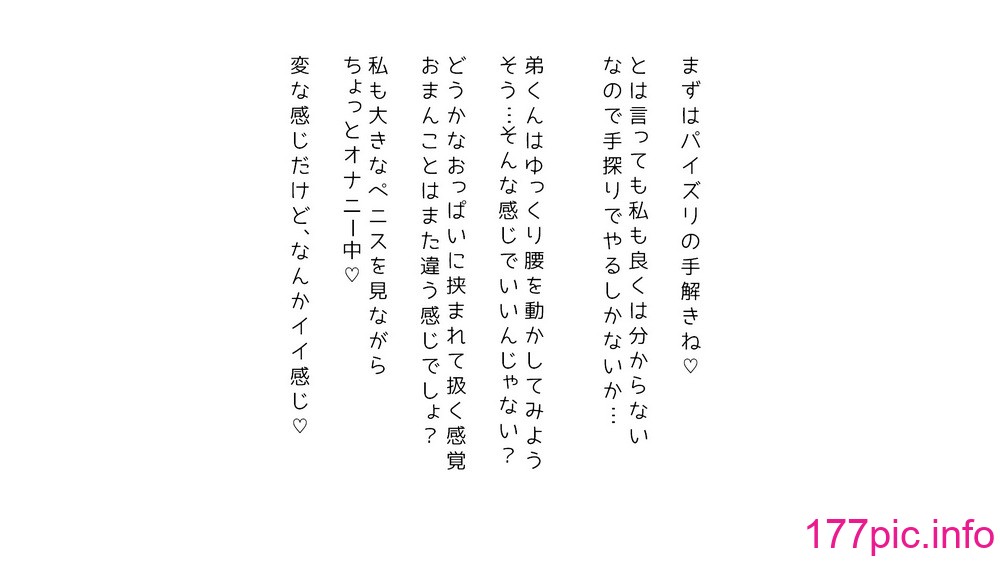 まずはパイズリの手解きね♡
とは言っても私も良くは分からない
なので手探りでやるしかないか…
弟くんはゆっくり腰を動かしてみよう
そう…そんな感じでいいんじゃない?
どうかなおっぱいに挟まれて扱く感覚
おまんことはまた違う感じでしょ?
私も大きなペニスを見ながら
ちょっとオナニー中♡
変な感じだけど、なんかイイ感じ♡
177pic.info